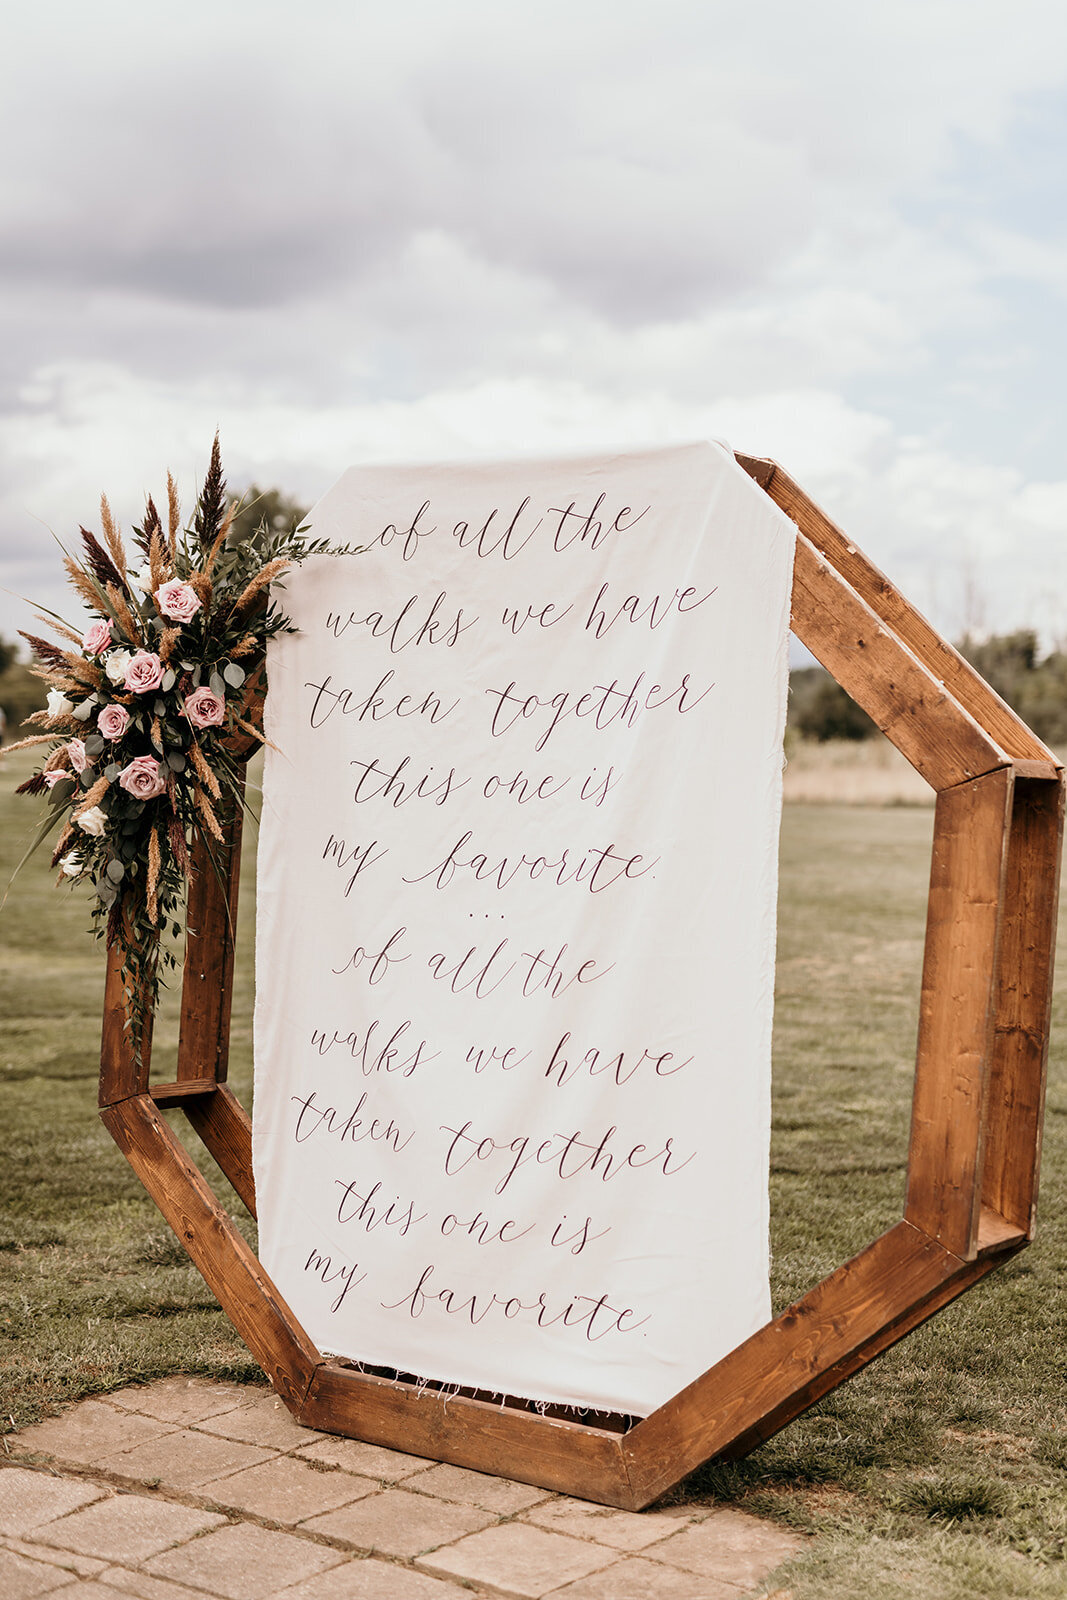 of all the
walks we have
taken together
this one is
my favorite.
...
of all the
walks we have
taken together
this one is
my favorite.